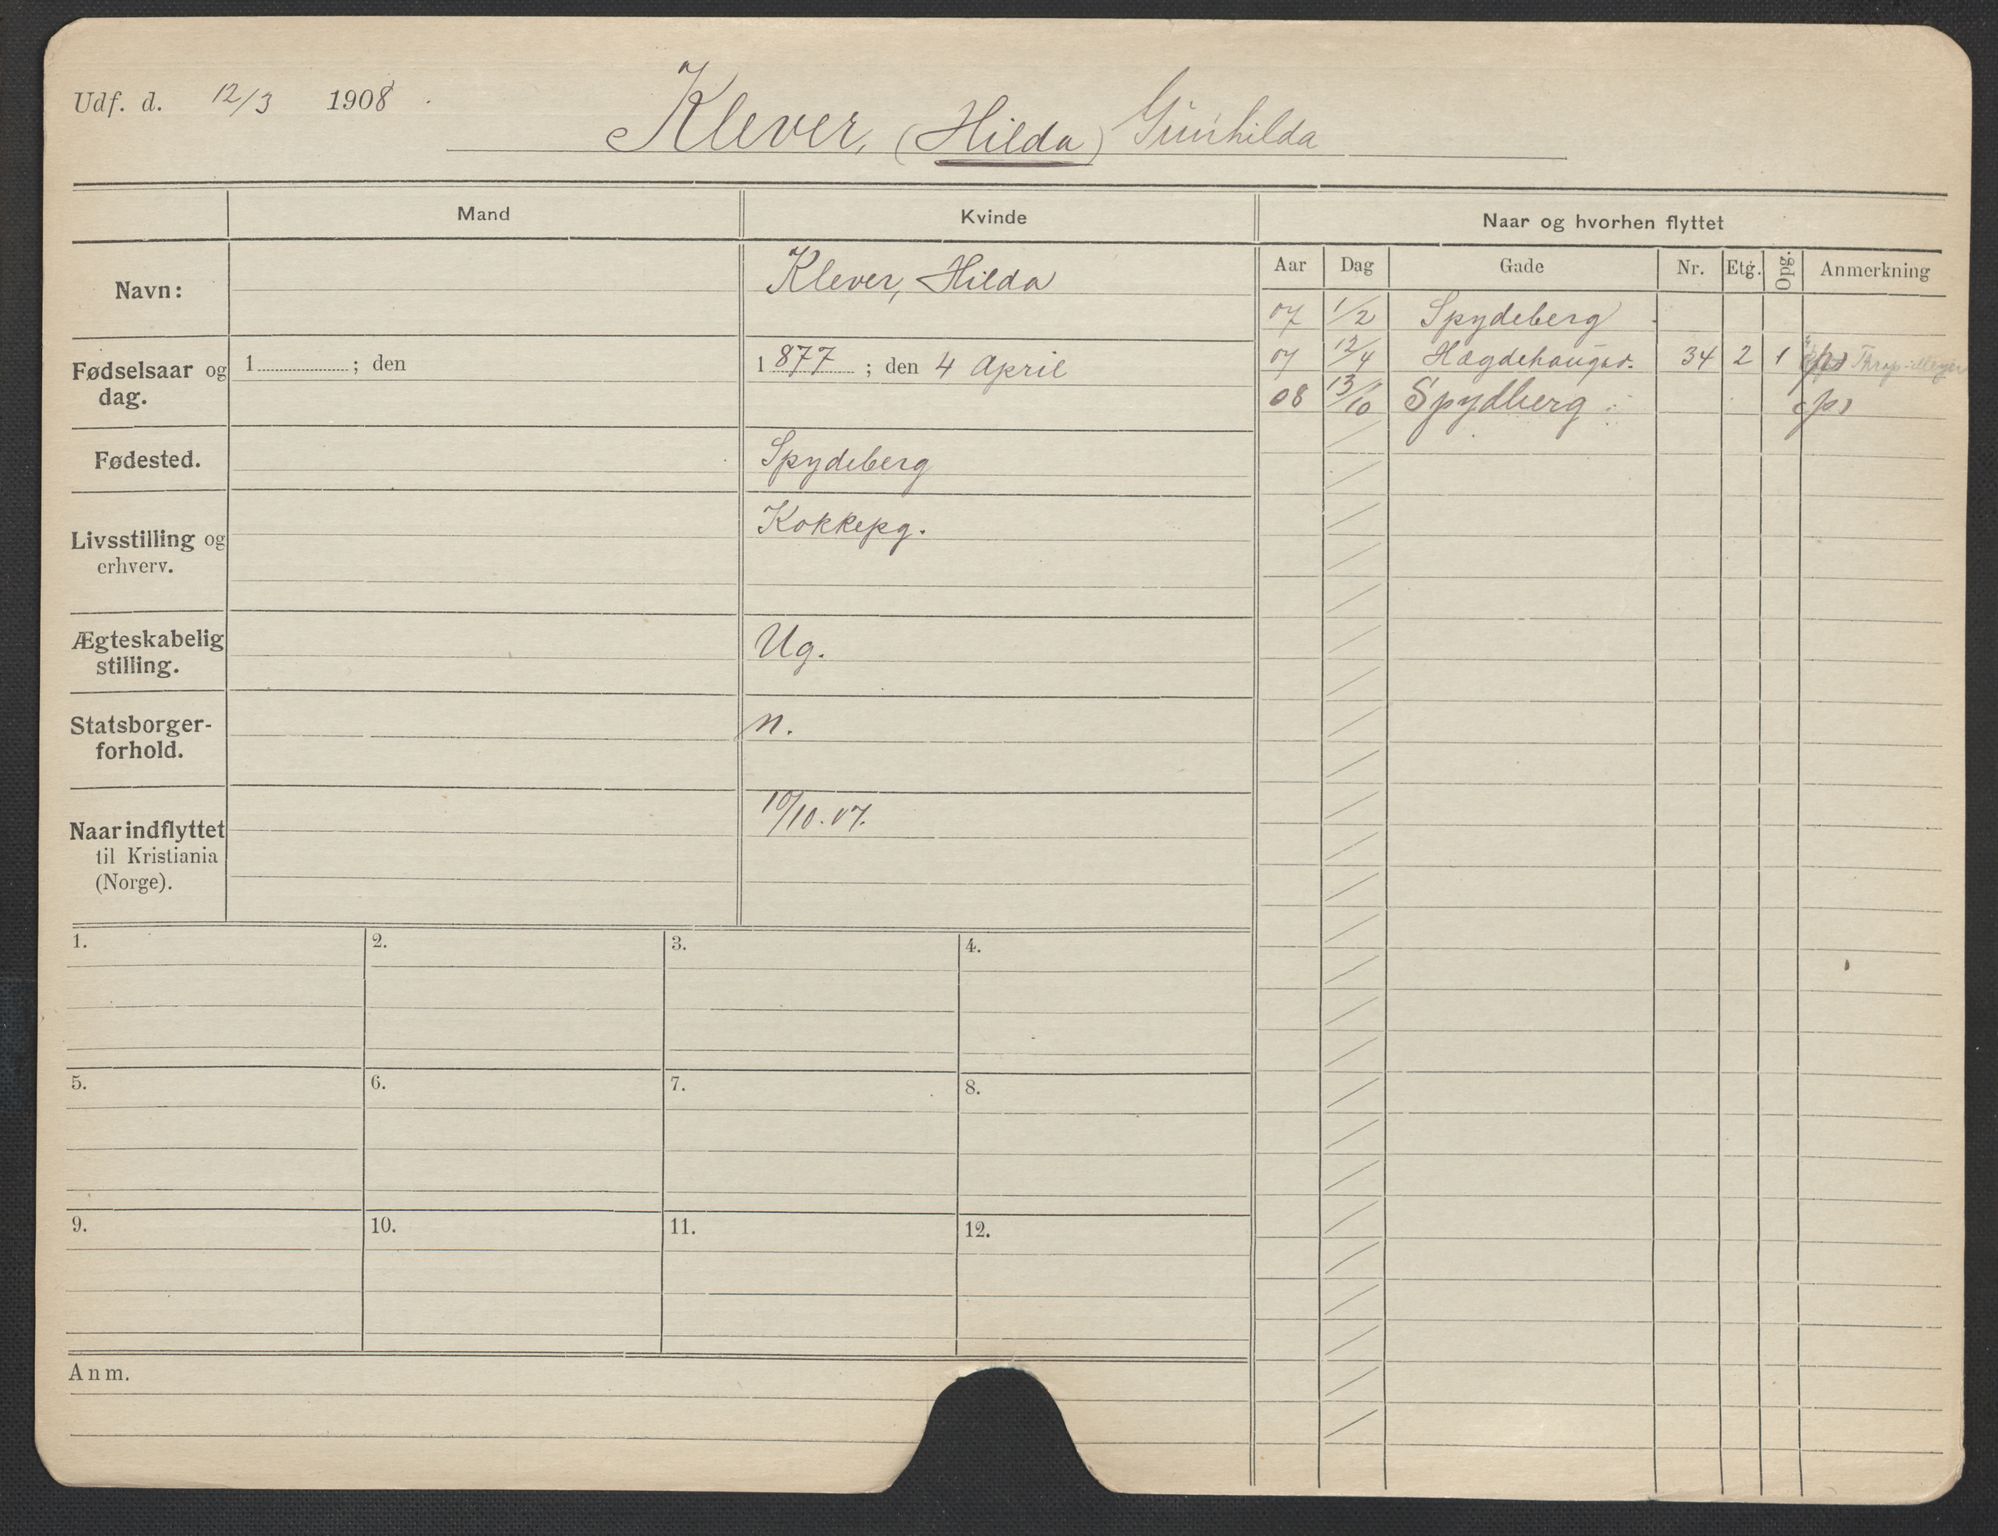 Udf. d. 12/3 1908.
Klever, (Hilda) Gunhilda
Mand
Kvinde
Naar og hvorhen flyttet
Navn:
Klever, Hilda
Fødselsaar og dag.
1 ; den
1 877 ; den 4 April
Fødested.
Spydeberg
Livsstilling og erhverv.
Kokkepg.
Ægteskabelig stilling.
Ug.
Statsborger-
forhold.
n.
Naar indflyttet
til Kristiania
(Norge).
10/10.07.
Aar Dag Gade Nr. Etg. Opg. Anmerkning
07 1/2 Spydeberg
07 12/4 Hægdehaugsv. 34 2 1
08 13/10 Spydberg
1. 2. 3. 4.
5. 6. 7. 8.
9. 10. 11. 12.
Anm.